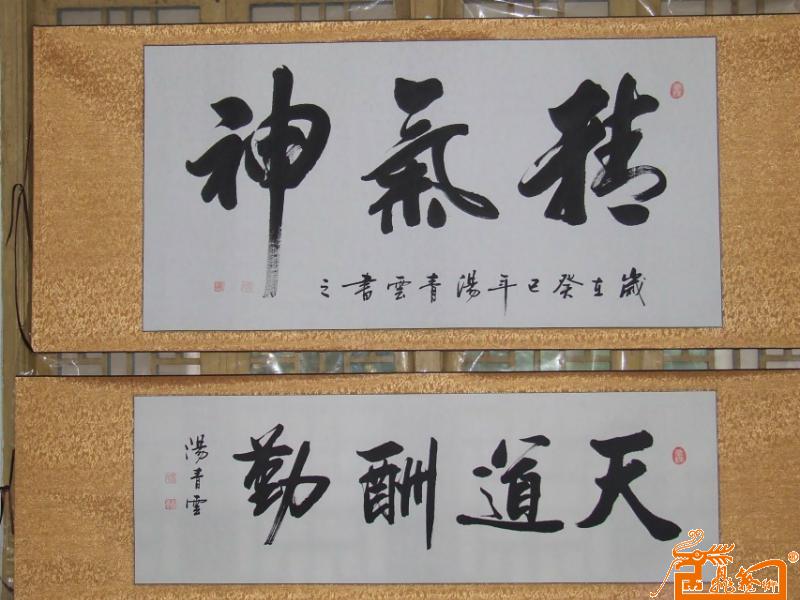 精氣神
歲在癸巳年湯青雲書之
天道酬勤
湯青雲